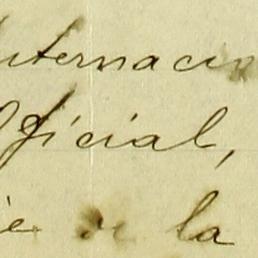 nternacio
Oficial,
ie de la